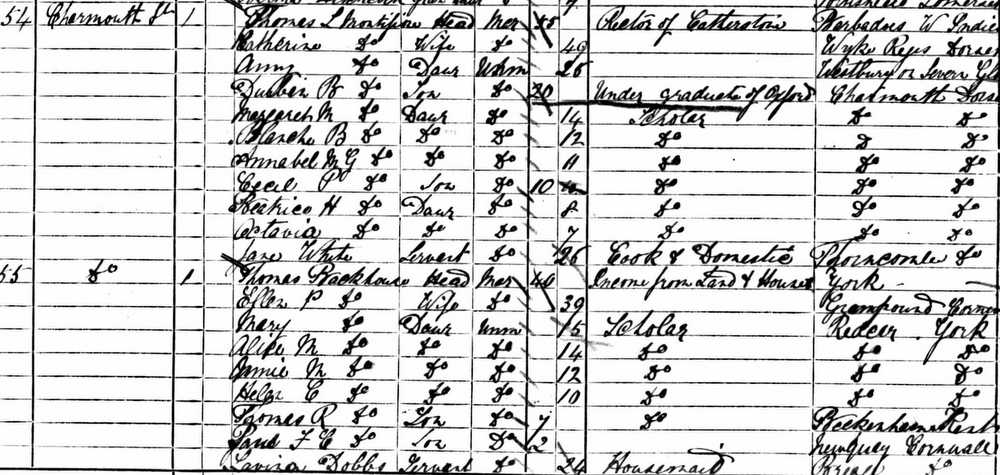 54 Charmouth St 1 Thomas L Montifiore Head Mar 55 Rector of Catterston Barbados W Indies
Katherine Do Wife Do 49 Wyke Regis Dorset
Amy Do Daur Unm 26 Westbury on Severn Glo
B Do Son Do 20 Under graduate of Oxford Charmouth Dorse
Margaret M Do Daur Do 14 Scholar Do Do
Blanche B Do Do Do 12 Do Do Do
Annabel M G Do Do Do 11 Do Do Do
Cecil P Do Son Do 10 Do Do Do
Beatrice H Do Daur Do 8 Do Do Do
Octavia Do Do Do 7 Do Do Do
Jane White Servant Do 26 Cook & Domestic Thorncombe Do
55 Do 1 Thomas Backhouse Head Mar Income from Land & Houses York
Ellen P Do Wife Do 39 Grampound Cornw
Mary Do Daur Unm 15 Scholar Redcar York
Alice M Do Do Do 14 Do Do Do
Annie M Do Do Do 12 Do Do Do
Helen C Do Do Do 10 Do Do Do
Thomas R Do Son Do 4 Do Beckenham Kent
Paul F C Do Son Do 2 Newquay Cornwall
Lavinia Dobbs Servant Do 24 Housemaid Do